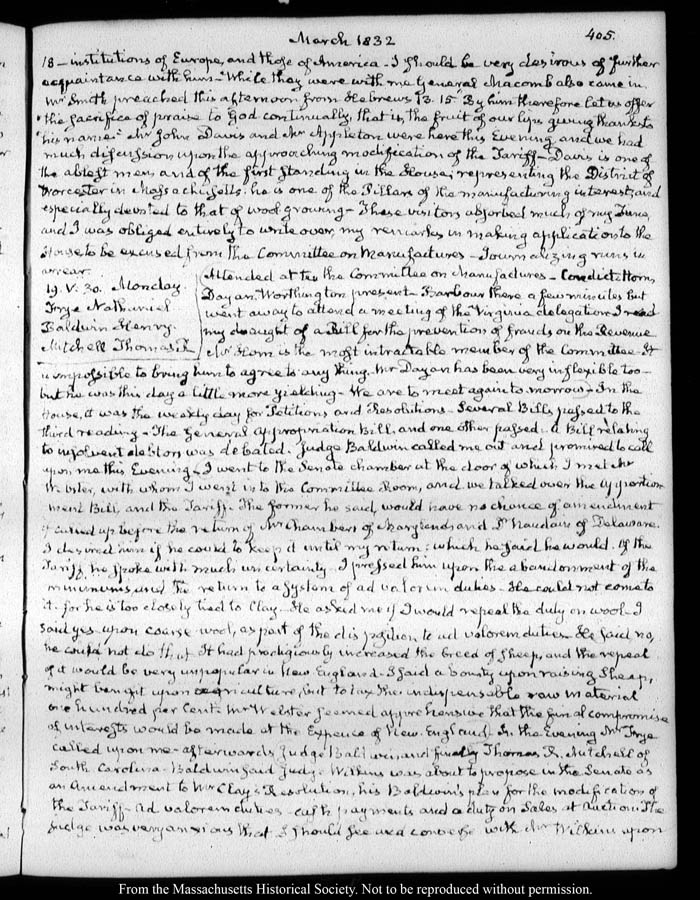 March 1832
405.
18 — institutions of Europe, and those of America. I should be very desirous of further
acquaintance with him. While they were with me General Macomb also came in.
Mr Smith preached this afternoon from Hebrews 13. 15 "By him therefore let us offer
"the sacrifice of praise to God continually, that is, the fruit of our lips giving thanks to
"his name." Mr John Davis and Mr Appleton were here this Evening, and we had
much discussion upon the approaching modification of the Tariff. Davis is one of
the ablest men, and of the first standing in the House, representing the District of
Worcester in Massachusetts; he is one of the Pillars of the manufacturing interest, and
especially devoted to that of wool growing. These visitors absorbed much of my Time,
and I was obliged entirely to write over, my remarks in making application to the
House to be excused from the Committee on Manufactures. Journalizing runs in
arrear.
19. V. 30. Monday.
Frye Nathaniel
Baldwin Henry.
Mitchell Thomas R
Attended at ten the Committee on Manufactures. Condict, Horn,
Dayan, Worthington present. Barbour there a few minutes but
went away to attend a meeting of the Virginia delegation. I read
my draught of a Bill for the prevention of frauds on the Revenue
Mr Horn is the most intractable member of the Committee. It
is impossible to bring him to agree to any thing. Mr Dayan has been very inflexible too
but he was this day a little more yielding. We are to meet again to morrow. In the
House, it was the weekly day for Petitions and Resolutions. Several Bills passed to the
third reading. The General appropriation Bill, and one other passed. a Bill relating
to insolvent debtors was debated. Judge Baldwin called me out and promised to call
upon me this Evening. I went to the Senate chamber at the door of which I met Mr
Webster, with whom I went into the Committee Room, and we talked over the apportion-
ment Bill, and the Tariff. The former he said, would have no chance of amendment
if carried up before the return of Mr Chambers of Maryland, and Dr Naudain of Delaware.
I desired him if he could to keep it until my return; which he said he would. Of the
Tariff, he spoke with much uncertainty. I pressed him upon the abandonment of the
minimums and the return to a system of ad valorem duties. He could not come to
it. for he is too closely tied to Clay. He asked me if I would repeal the duty on wool. I
said yes upon coarse wool, as part of the disposition to ad valorem duties. He said no,
he could not do that. It had prodigiously increased the breed of sheep, and the repeal
of it would be very unpopular in New England. I said a bounty upon raising sheep,
might benefit agriculture, but to tax the indispensable raw material
one hundred per Cent. Mr Webster seemed apprehensive that the final compromise
of interests would be made at the Expence of New England. In the Evening Mr Frye
called upon me. afterwards Judge Baldwin and finally Thomas R. Mitchell of
South Carolina. Baldwin said Judge Wilkins was about to propose in the Senate as
an Amendment to Mr Clay's Resolution, his Baldwin's plan for the modification of
the Tariff. ad valorem duties. cash payments and a duty on Sales at Auction. The
Judge was very anxious that I should see and converse with Mr Wilkins upon
From the Massachusetts Historical Society. Not to be reproduced without permission.